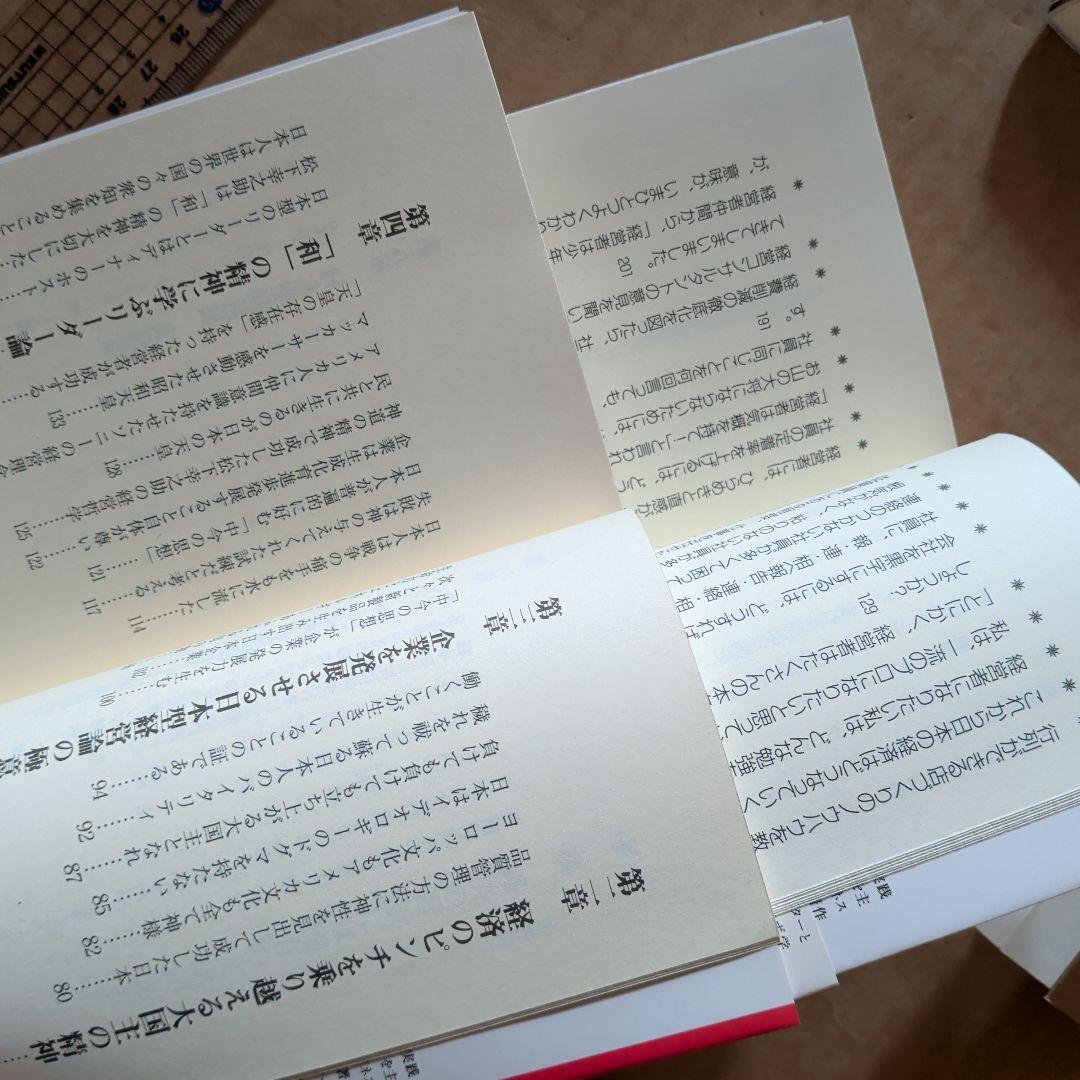 第二章
経済のピンチを乗り越える大国主の精神
品質管理の方法に神性を見出して成功した日本……80
ヨーロッパ文化もアメリカ文化も全て神様……82
日本はイデオロギーのドグマを持たない……85
負けても負けても立ち上がる大国主となれ……87
穢れを祓って蘇る日本人のバイタリティ……92
働くことが生きていることの証である……94
第三章
企業を発展させる日本型経営論の極意
「中今の思想」が企業の発展力を生む……100
次々と新製品を生み出す日本企業
日本人は戦争の痛手をも水に流した……114
失敗は神の与えてくれた試練だと考える……117
日本人が普遍的に好む「中今の思想」……121
企業は生成化育進歩発展すること自体が尊い……122
神道の精神で成功した松下幸之助の経営哲学……125
民と共に生きるのが日本の天皇……128
アメリカ人に仲間意識を持たせたソニーの経営理念
マッカーサーを感動させた昭和天皇……133
「天皇の存在感」を持った経営者が成功する
第四章
「和」の精神に学ぶリーダー論
日本型のリーダーとはディナーのホスト……
松下幸之助は「和」の精神を大切にした
日本人は世界の国々の衆知を集めること
行列ができる店づくりのノウハウを教
＊これから日本の経済はどうなっていく
＊経営者になりたい私は、どんな勉強
＊私は、一流のプロになりたいと思って、
「とにかく、経営者はたくさんの本
しょうか？ 129
＊会社を黒字にするには、どうすれば
＊社員に、報・連・相（報告・連絡・相
＊連絡のつかない社員が多くて困っ
＊経営者には、ひらめきと直感が
＊社員の定着率を上げるには、どう
＊「経営者は気概を持て！」と言われ
＊お山の大将にならないためには、
＊社員に同じことを何回言っても、
す。 191
＊経費削減の徹底化を図ったら、社
経営コンサルタントの意見を聞い
てきてしまいました。 201
＊経営者仲間から、「経営者は少年
が、意味が、いまひとつよくわか
26
27
28